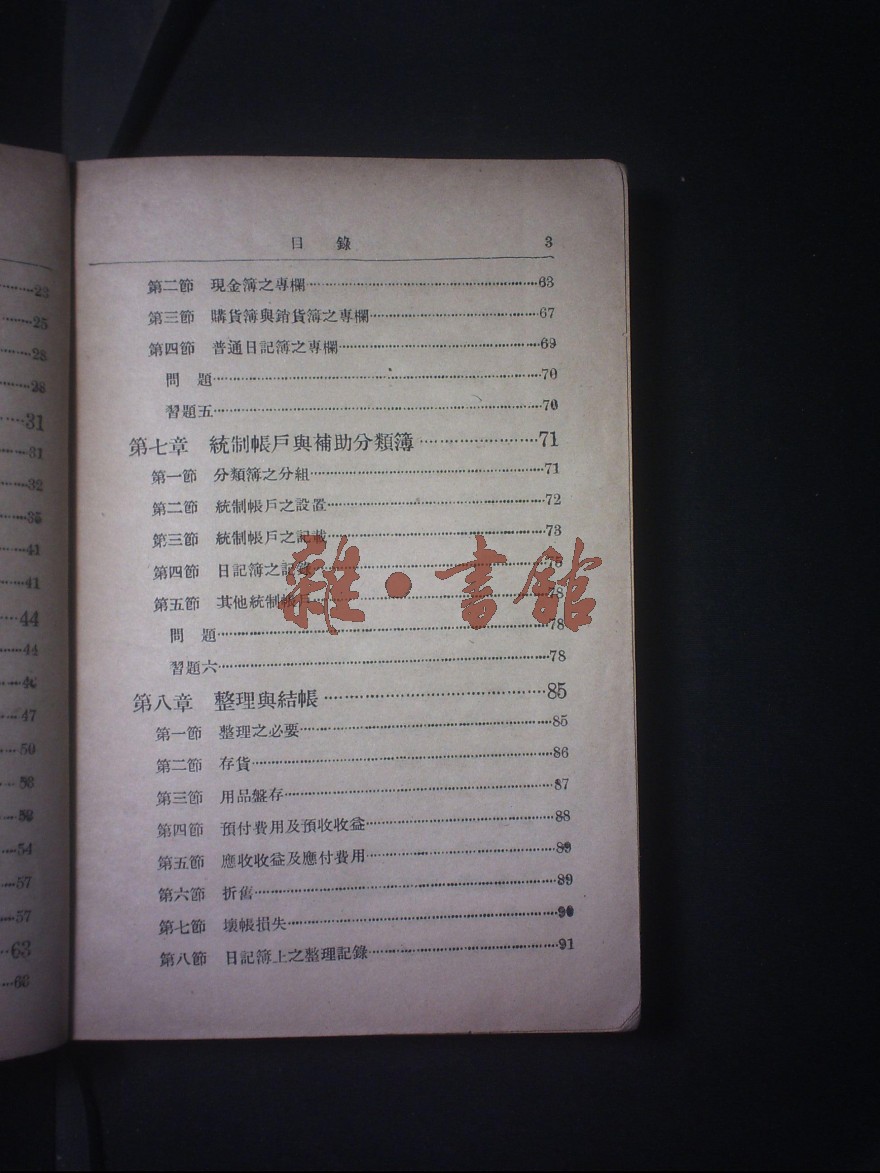 23
25
28
28
31
31
32
35
41
41
44
44
46
47
50
53
53
54
57
57
63
60
目 錄 3
第二節 現金簿之專欄 63
第三節 購貨簿與銷貨簿之專欄 67
第四節 普通日記簿之專欄 69
問 題 70
習題五 70
第七章 統制帳戶與補助分類簿 71
第一節 分類簿之分組 71
第二節 統制帳戶之設置 72
第三節 統制帳戶之記載 73
第四節 日記簿之記錄 75
第五節 其他統制帳戶 78
問 題 78
習題六 78
第八章 整理與結帳 85
第一節 整理之必要 85
第二節 存貨 86
第三節 用品盤存 87
第四節 預付費用及預收收益 88
第五節 應收收益及應付費用 89
第六節 折舊 89
第七節 壞帳損失 90
第八節 日記簿上之整理記錄 91
雜·書館